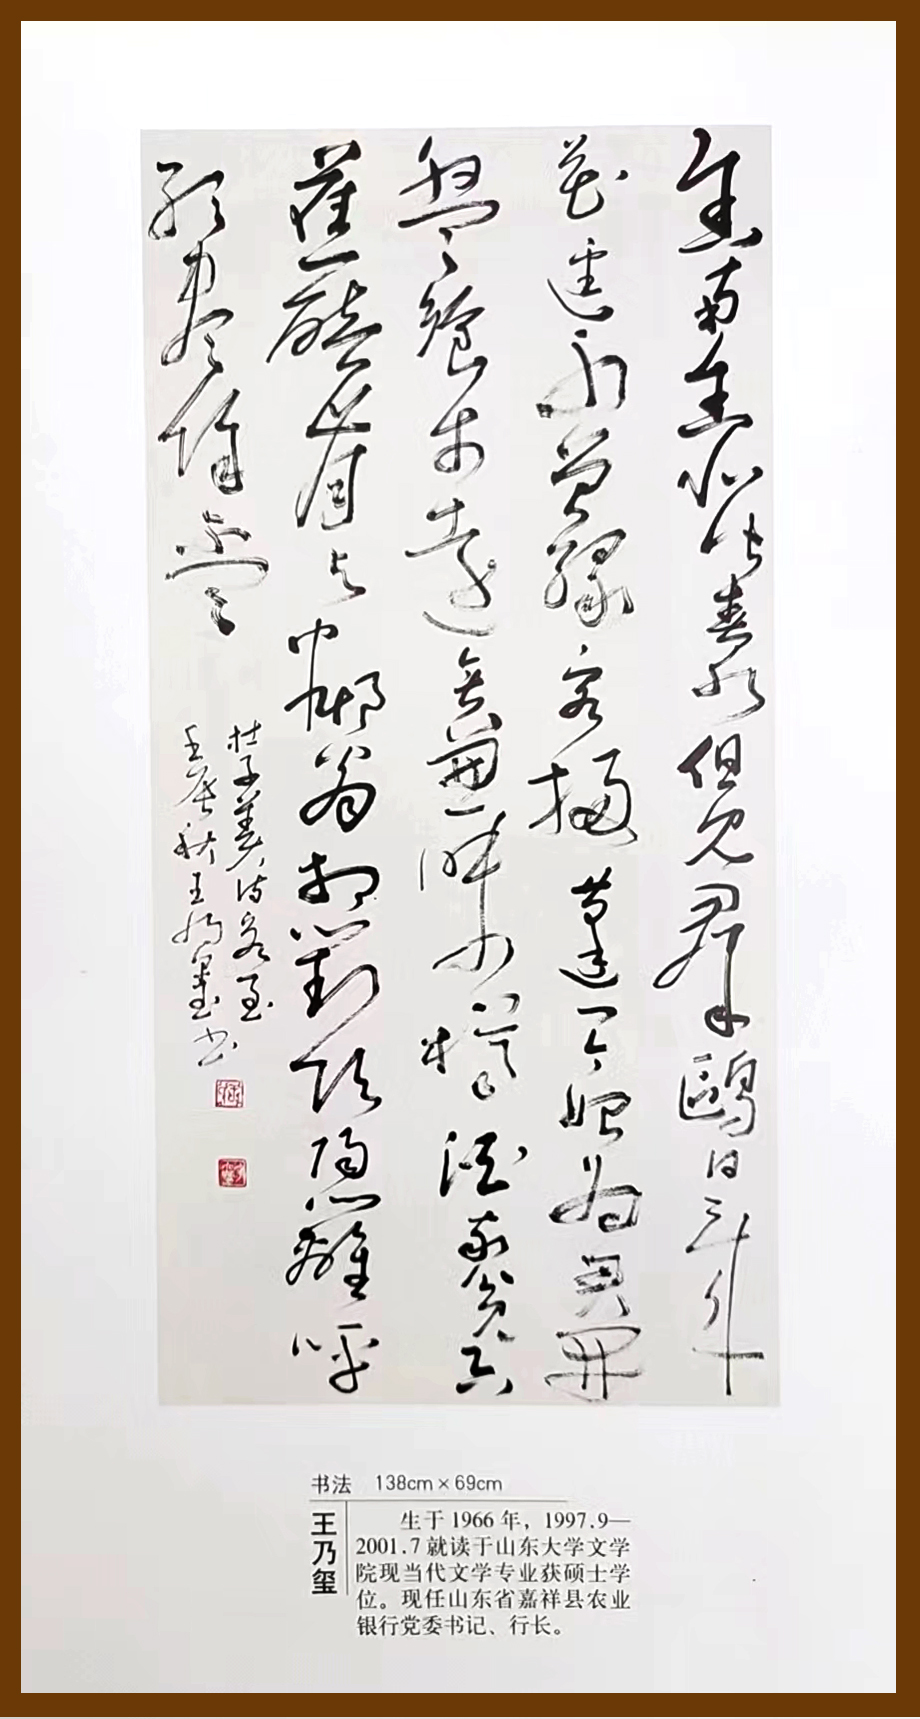 舍南舍北皆春水但見群鷗日日來
花逕不曾緣客掃蓬門今始為君開
盤飧市遠無兼味樽酒家貧只
舊醅肯与鄰翁相對飲隔籬呼
取盡餘杯
杜子美詩客至
壬辰秋王乃璽书
书法 138cm×69cm
王乃玺
生于1966年，1997.9—
2001.7就读于山东大学文学
院现当代文学专业获硕士学
位。现任山东省嘉祥县农业
银行党委书记、行长。